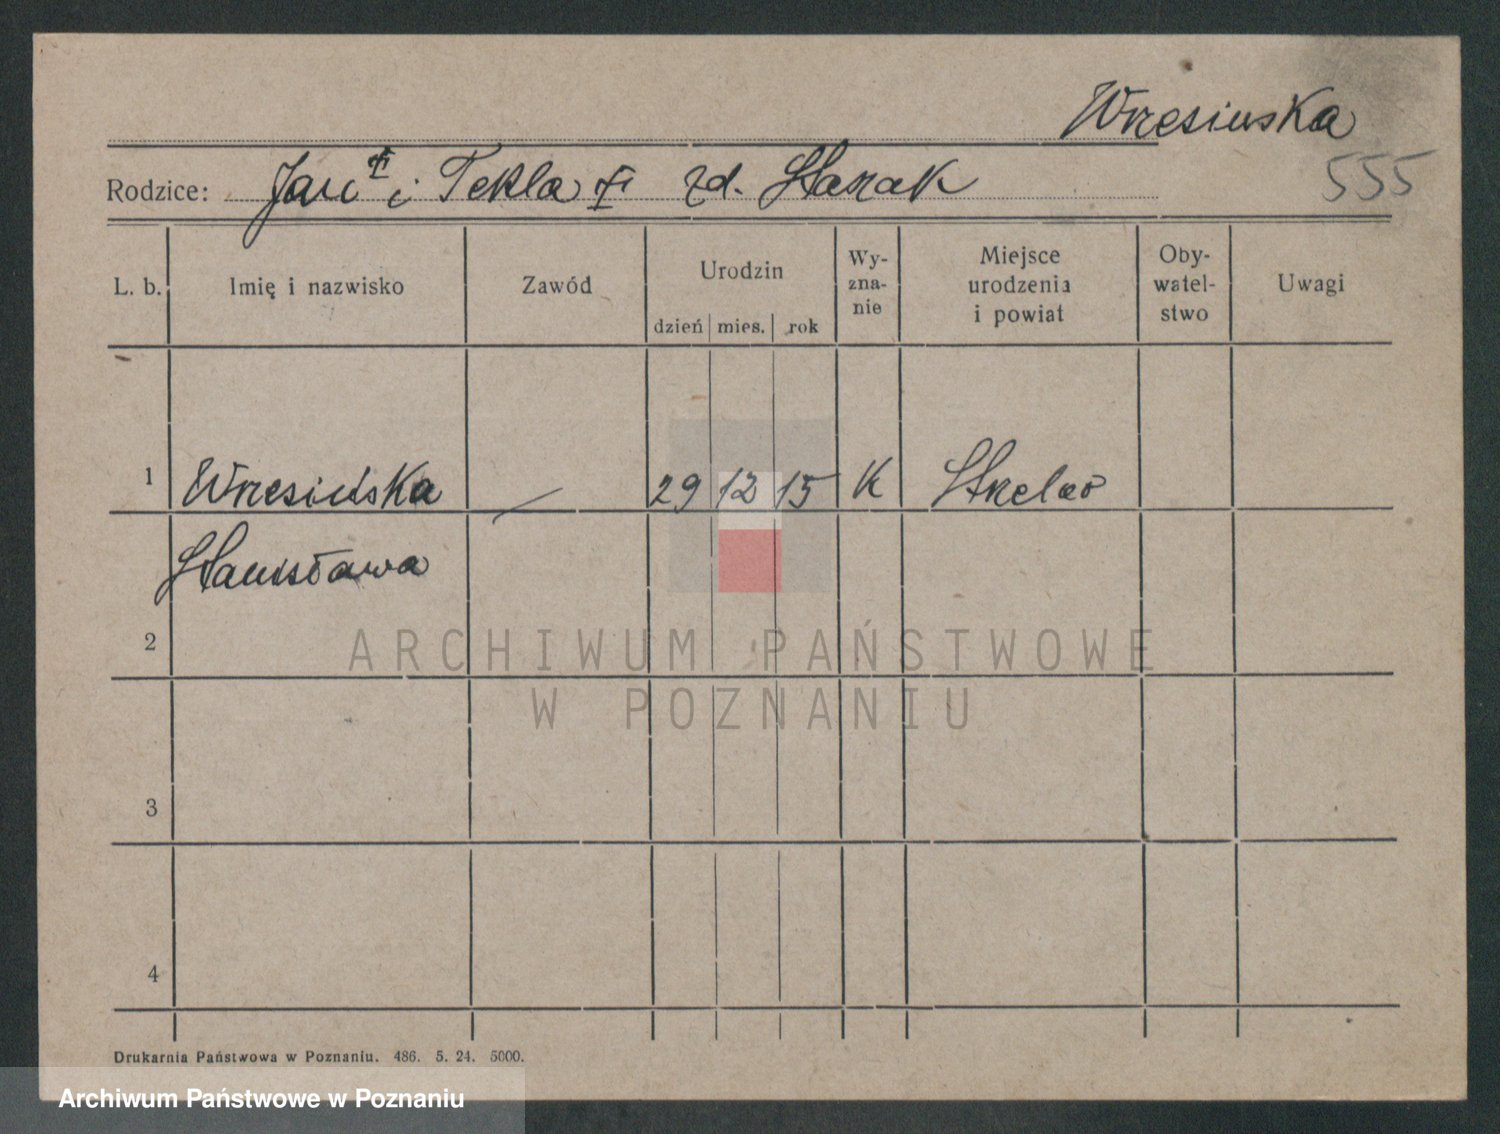 Wrzesińska
555
Rodzice: Jan i Tekla zd. Stasak
L. b. Imię i nazwisko Zawód Urodzin dzień mies. rok Wy-zna-nie Miejsce urodzenia i powiat Oby-watel-stwo Uwagi
1 Wrzesińska — 29 12 15 K Strelno
Stanisława
2
ARCHIWUM PAŃSTWOWE
W POZNANIU
3
4
Drukarnia Państwowa w Poznaniu. 486. 5. 24. 5000.
Archiwum Państwowe w Poznaniu